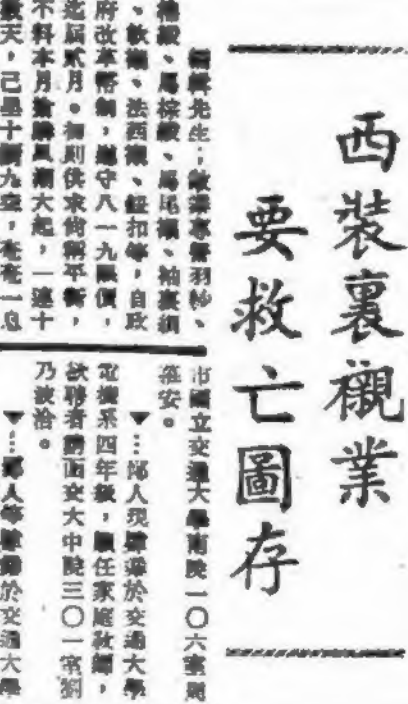 西裝裏襯業
要救亡圖存
編輯先生；敝業專營羽紗、
、法西襯、鈕扣等，自政
府改革幣制，遵守八一九限價，
迄屆貳月。初則供求尚稱平衡，
不料本月搶購風潮大起，一連十
數天，已是十廚九空，奄奄一息
市國立交通大學南院一〇六室
安。
▼：鄙人現肄業於交通大學
電機系四年級，願任家庭教師，
欲聘者請函交大中院三〇一室劉
乃波洽。
▼：鄙人等肄業於交通大學